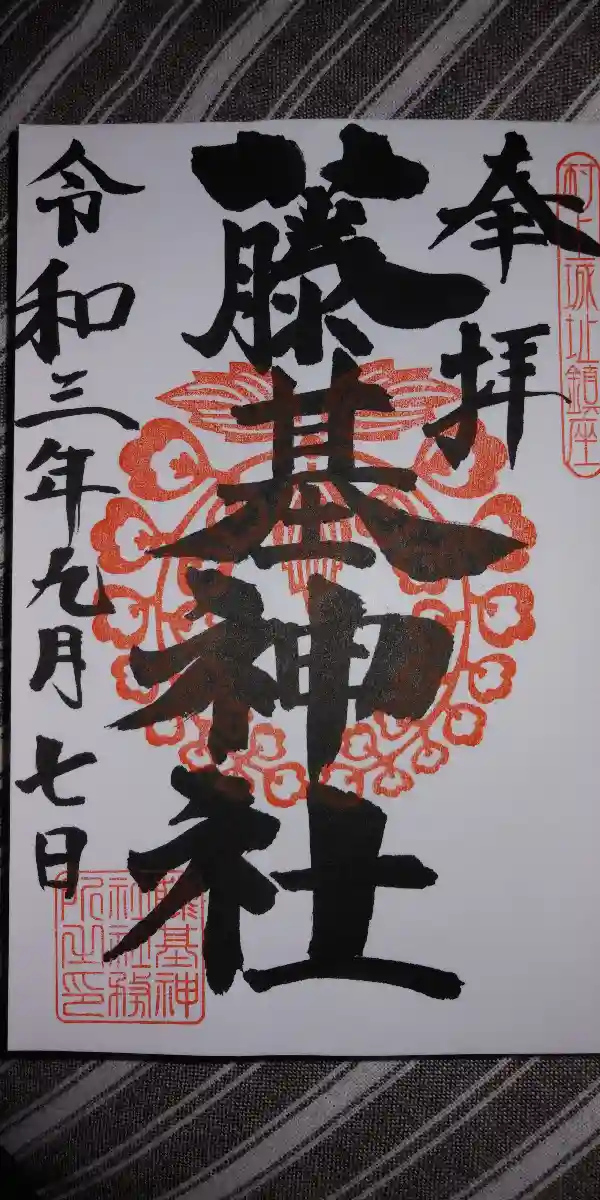 村上城址鎮座
奉拝
藤基神社
令和三年九月七日
藤基神
社社務
所之印